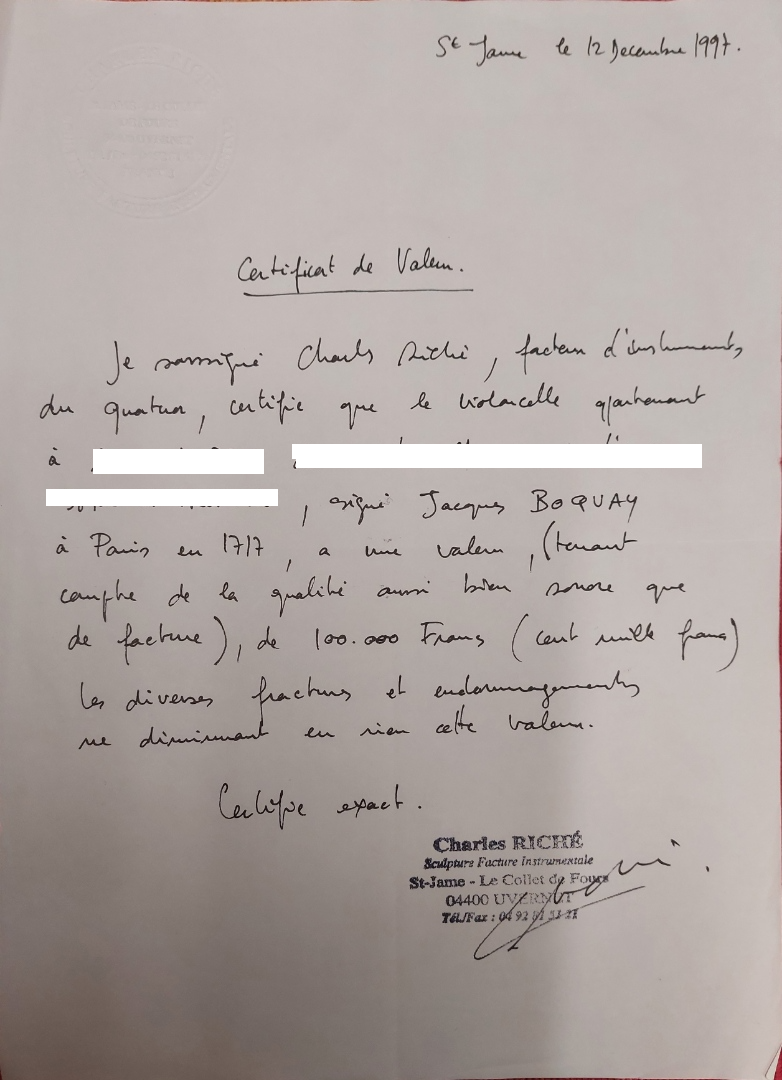 St Jame le 12 Decembre 1997.
Certificat de Valeur.
Je soussigné Charles Riché, facteur d'instruments
du quatuor, certifie que le violoncelle appartenant
à
, signé Jacques BOQUAY
à Paris en 1717, a une valeur, (tenant
compte de la qualité aussi bien sonore que
de facture), de 100.000 Francs (cent mille francs)
les diverses fractures et endommagements
ne diminuant en rien cette valeur.
Certifie exact.
Charles RICHÉ
Sculpture Facture Instrumentale
St-Jame - Le Collet de Fours
04400 UVERNET
Tél./Fax : 04 92 81 21